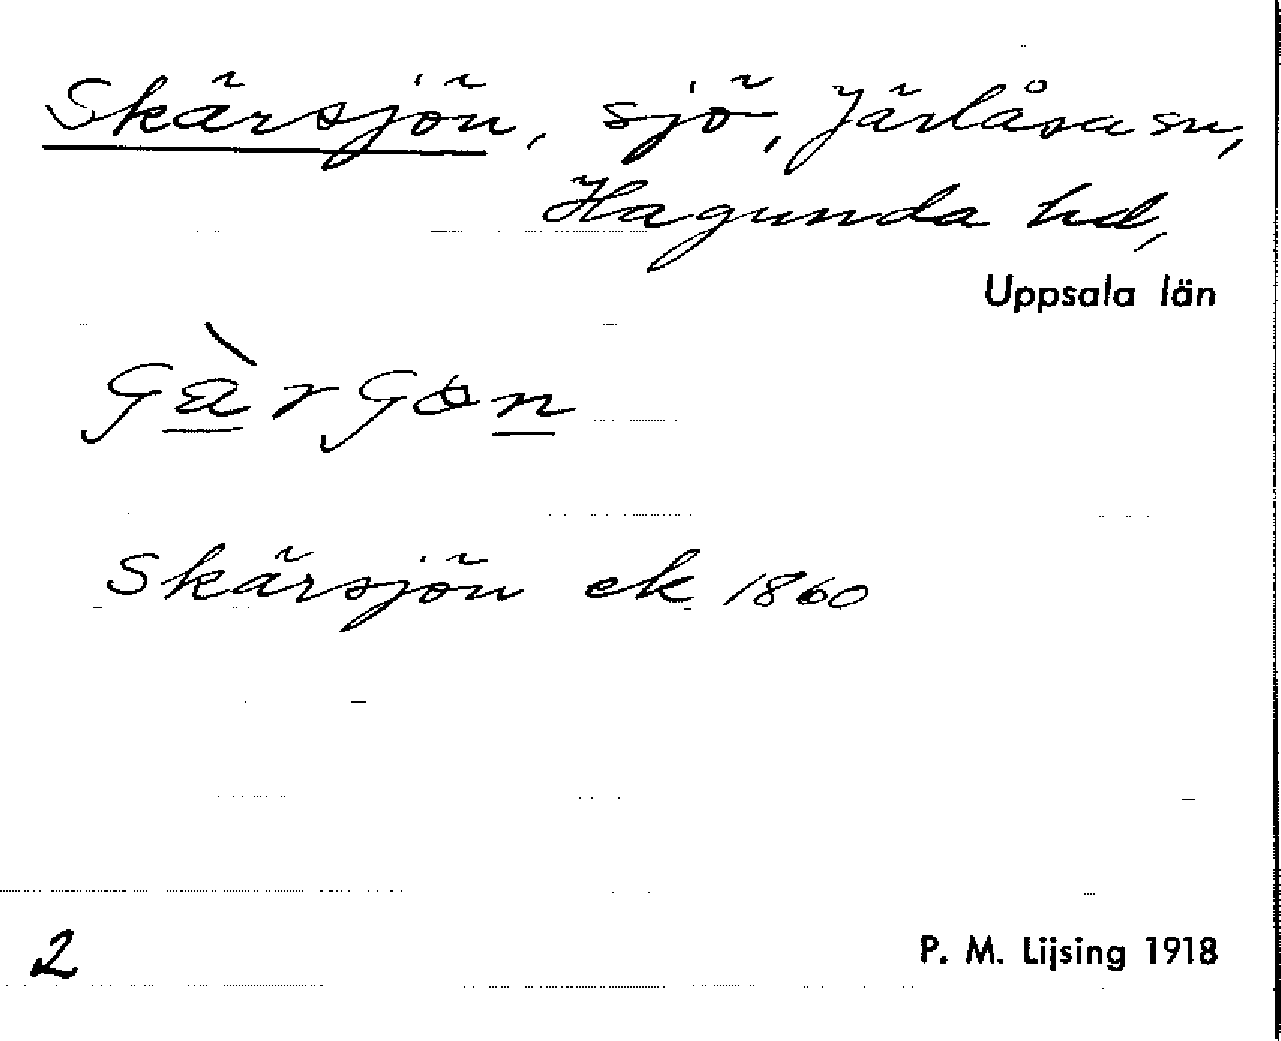 Skärsjön, sjö, Järlåsa sn,
Hagunda hd,
Uppsala län
Skärsjön ek 1860
2
P. M. Lijsing 1918